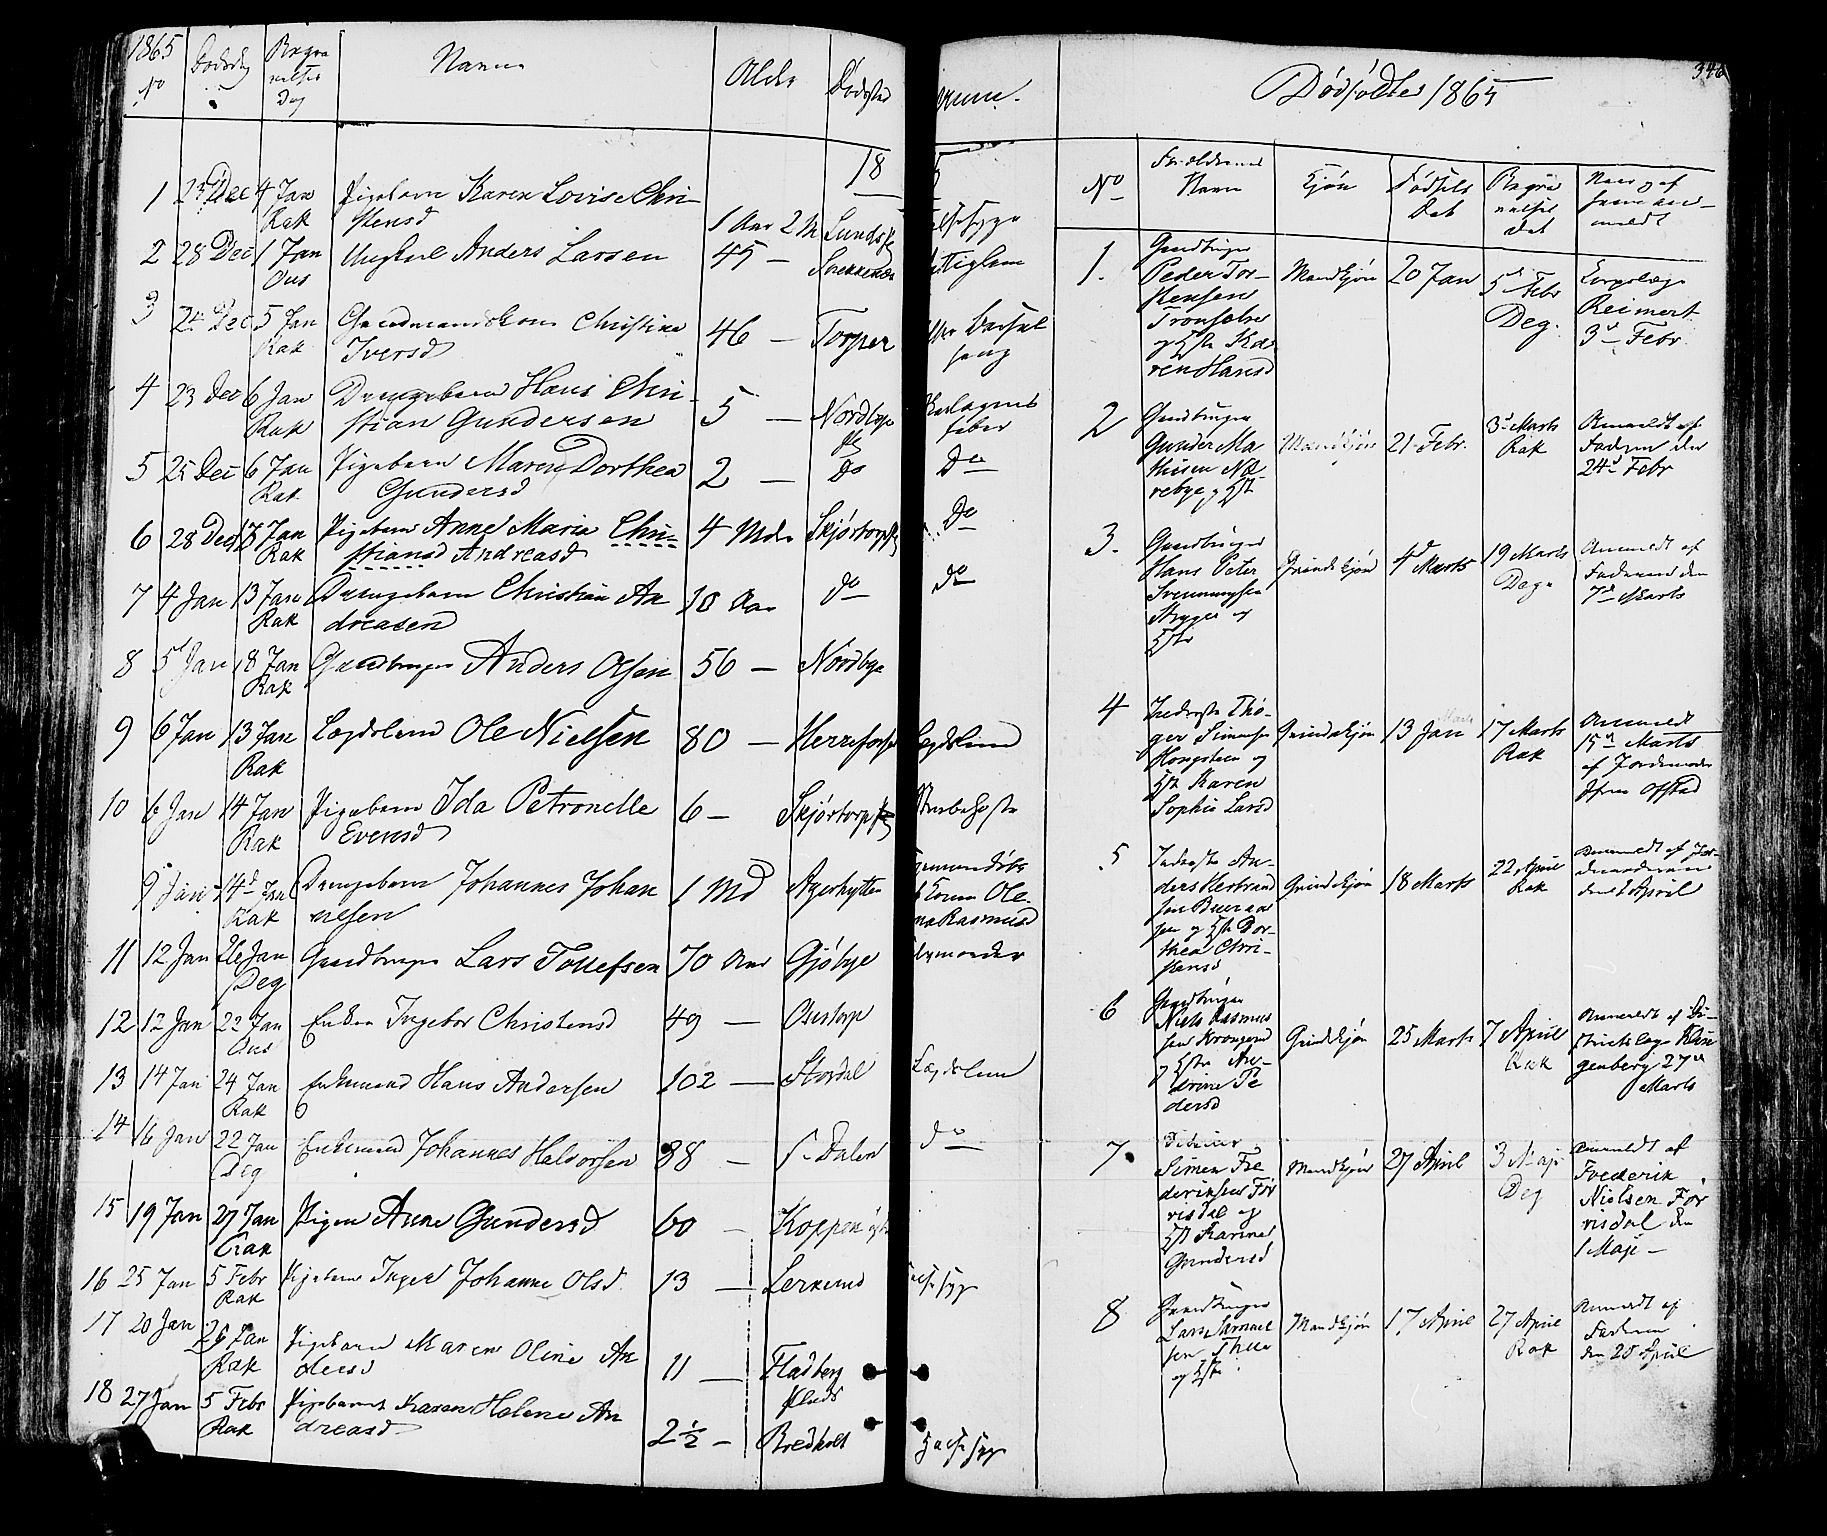 1865
No
Dødsdag
Begra
velses
Dag
Navn
Alder
Dødssted
18
1 23 Dec 4 Jan Rak Pigebarn Karen Lovise Chri-
stensd 1 Aar 2 M Lunds
2 28 Dec 1 Jan Ous Ungkarl Anders Larsen 45 —
3 24 Dec 5 Jan Rak Gaardmandskone Christine
Iversd 46 — Torper
4 23 Dec 6 Jan Rak Drengebarn Hans Chri-
stian Gundersen 5 — Nordbye
5 25 Dec 6 Jan Rak Pigebarn Maren Dorthea
Gundersd 2 — Do Do
6 28 Dec 13 Jan Rak Pigebarn Anne Maria Chri-
stiansd Andreasd 4 Mdr Skjørtorp Do
7 4 Jan 13 Jan Rak Drengebarn Christian An
dreasen 10 Aar do do
8 5 Jan 18 Jan Rak Gaardbruger Anders Olsen 56 — Nordbye
9 6 Jan 13 Jan Rak Lægdslem Ole Nielsen 80 — Herrefoss Lægdslem
10 6 Jan 14 Jan Rak Pigebarn Ida Petronelle
Evensd 6 — Skjørtorp
9 Jan 14 Jan Rak Drengebarn Johannes Johan
nesen 1 Md Agerhytten
Ole
Rasmusd
11 12 Jan 26 Jan Deg Gaardbruger Lars Tollefsen 70 Aar Gjøbye
12 12 Jan 22 Jan Ous Enken Ingebor Christensd 49 — Oustorp
13 14 Jan 24 Jan Rak Enkemand Hans Andersen 102 — Stordal Lægdslem
14 16 Jan 22 Jan Deg Enkemand Johannes Halvorsen 88 — Dalen do
15 19 Jan 27 Jan Rak Pigen Anne Gundersd 60 — Koppen
16 25 Jan 5 Febr Rak Pigebarn Inger Johanne Olsd 13 — Lerkerud
17 20 Jan 26 Jan Rak Pigebarn Maren Oline An
dersd 11 — Fladberg
Plads
18 27 Jan 5 Febr Rak Pigebarnet Karen Helene An
dreasd 2½ — Bredholt Halssyge
Dødfødte 1865
No
Forældrenes
Navn
Kjøn
Fødsels
Dat
Begra
velses
Dat
Naar og af
hvem an-
meldt
1. Gaardbruger
Peder Tor-
stensen
og Hst Ka
ren Hansd
Mandkjøn 20 Jan 5 Febr
Deg.
Corpslæge
Reimert
3 Febr
2 Gaardbruger
Gunder Ma
thisen
og Hst
Mandkjøn 21 Febr. 3 Marts
Rak
Anmeldt af
Faderen den
24 Febr
3. Gaardbruger
Hans Peter
Svenningsen
og
Hst
Qvindekjøn 4 Marts 19 Marts
Anmeldt af
Faderen den
7 Marts
4 Inderste Thø-
ger Simensen
og
Hst Karen
Sophie Larsd
Qvindekjøn 13 Jan Marts 17 Marts
Rak
Anmeldt
15 Marts
af Jordemoder
5 Inderste An-
ders
og Hst Dor-
thea Chri-
stensd
Qvindekjøn 18 Marts 22 April
Rak
Anmeldt af Jor-
demoderen
den April
6 Gaardbruger
Niels Rasmus
sen
og Hst An-
drine Pe
dersd
Qvindekjøn 25 Marts 7 April
Rak
Anmeldt af Di-
strictslæge Klin
genberg 27
Marts
7.
Simen Fre
deriksen Før
risdal og
Hst Karine
Gundersd
Mandkjøn 27 April 3 Maji
Deg
Anmeldt af
Frederik
Nielsen Før
risdal den
1 Maji —
8 Gaardbruger
Lars Samuel
sen
og Hst
Mandkjøn 17 April 27 April
Rak
Anmeldt af
Faderen
den 25 April